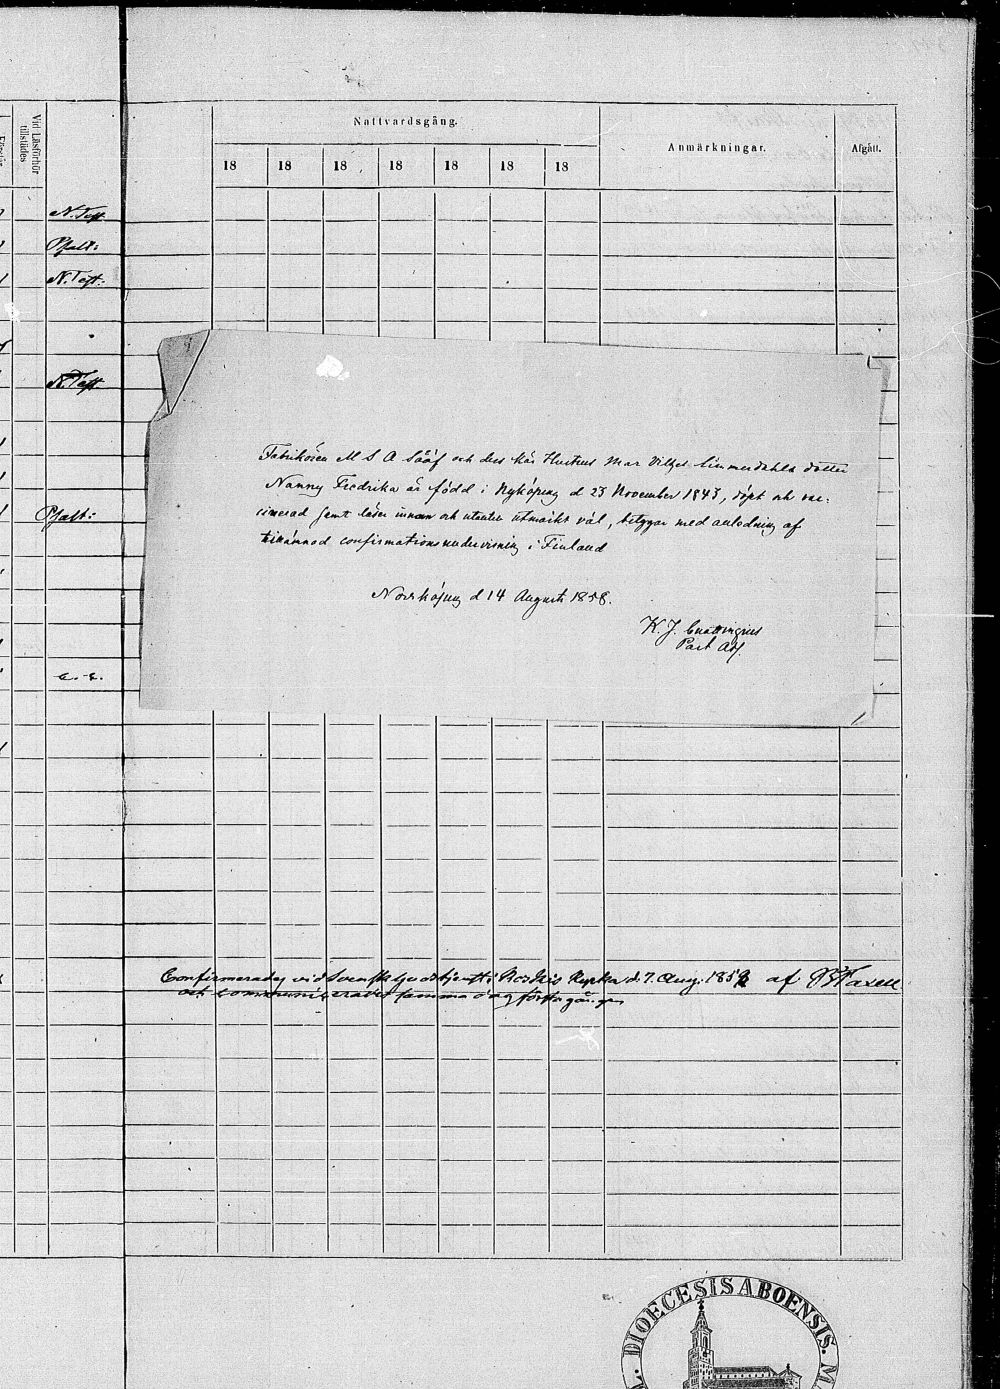 Vid Läsförhör
tillstädes
Nattvardsgång.
Anmärkningar.
Afgått.
18 18 18 18 18 18 18
N. Test.
Psalt:
N. Test:
N. Test.
Psalt:
a. a.
Fabrikören M S A Sääf och dess kär Hustrus Mar Vilhes Linnerdahls dotter
Nanny Fredrika är född i Nyköping d 23 November 1843, döpt och vac-
cinerad samt läser innan och utantill utmärkt väl, betygar med anledning af
tillämnad confirmationsundervisning i Finland
Norrköping d 14 Augusti 1858.
K. J. Cnattingius
Past Adj.
Confirmerades vid Svenska Gudstjensten i kyrka d. 7. Aug. 1859 af
och communicerades samma dag första gången
DIOECESIS ABOENSIS. M.